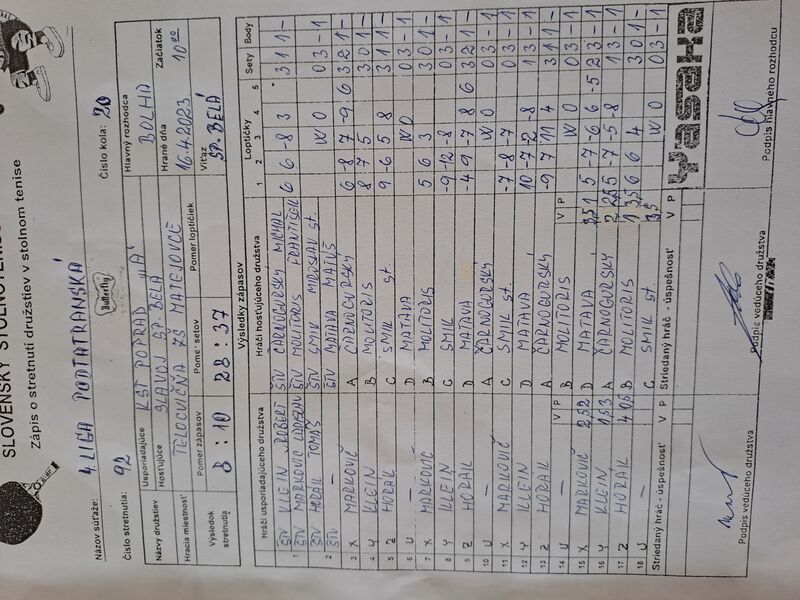 SLOVENSKÝ STOLNOTENISO
Zápis o stretnutí družstiev v stolnom tenise
Názov súťaže: 4. LIGA PODTATRANSKÁ
Butterfly
Číslo stretnutia: 92 Číslo kola: 20
Názvy družstiev Usporiadajúce KST POPRAD "A" Hlavný rozhodca BOLHA
Hosťujúce SLAVOJ SP. BELÁ Hrané dňa 16.4.2023 Začiatok 10⁰⁰
Hracia miestnosť TELOCVIČŇA ZŠ MATEJOVCE Víťaz SP. BELÁ
Výsledok stretnutia Pomer zápasov 8 : 10 Pomer setov 28 : 37 Pomer loptičiek
Výsledky zápasov
Hráči usporiadajúceho družstva Hráči hosťujúceho družstva Loptičky Sety Body
1 2 3 4 5
1 ŠTV KLEIN ROBERT ŠTV ČARNOGURSKÝ MICHAL 6 6 -8 3 3 1 1 -
ŠTV MARKOVIČ LADISLAV ŠTV MOLITORIS FRANTIŠEK
2 ŠTV HORÁK TOMÁŠ ŠTV SMIK MIROSLAV st. W O 0 3 - 1
ŠTV — ŠTV MATAVA MATÚŠ
3 X MARKOVIČ A ČARNOGURSKÝ 6 -8 7 -9 6 3 2 1 -
4 Y KLEIN B MOLITORIS 8 7 5 3 0 1 -
5 Z HORÁK C SMIK st. 9 -6 5 8 3 1 1 -
6 U — D MATAVA W O 0 3 - 1
7 X MARKOVIČ B MOLITORIS 5 6 3 3 0 1 -
8 Y KLEIN C SMIK -9 -12 -8 0 3 - 1
9 Z HORÁK D MATAVA -4 9 -7 8 6 3 2 1 -
10 U — A ČARNOGURSKÝ W O 0 3 - 1
11 X MARKOVIČ C SMIK st. -7 -8 -7 0 3 - 1
12 Y KLEIN D MATAVA 10 -7 -2 -8 1 3 - 1
13 Z HORÁK A ČARNOGURSKÝ -9 7 11 4 3 1 1 -
14 U — V P B MOLITORIS V P W O 0 3 - 1
15 X MARKOVIČ 2,5 2 D MATAVA 3,5 1 5 -7 -6 6 -5 2 3 - 1
16 Y KLEIN 1,5 3 A ČARNOGURSKÝ 2 2,5 5 -7 -5 -8 1 3 - 1
17 Z HORÁK 4 0,5 B MOLITORIS 1 3,5 6 6 4 3 0 1 -
18 U — C SMIK st. 3,5 W O 0 3 - 1
Striedaný hráč - úspešnosť V P Striedaný hráč - úspešnosť V P
Yasaka
Podpis vedúceho družstva Podpis vedúceho družstva Podpis hlavného rozhodcu